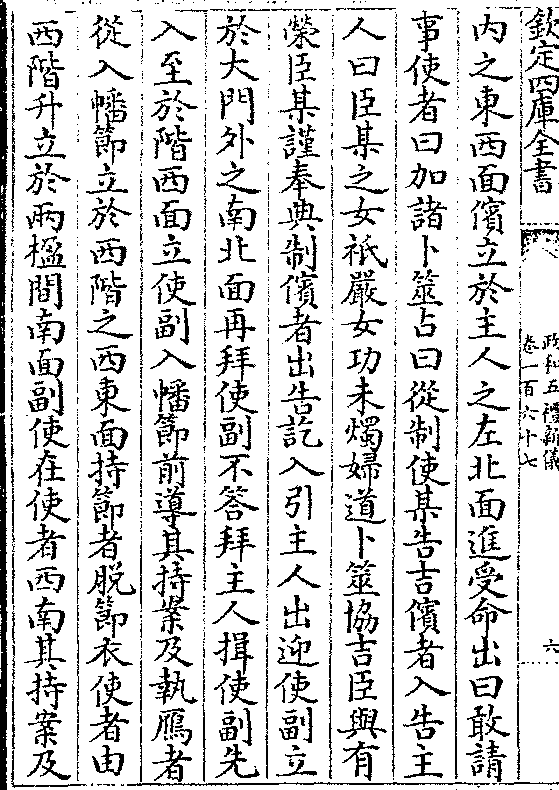 欽定四庫全書
政和五禮新儀
卷一百六十七
六
内之東西面儐立於主人之左北面進受命出曰敢請
事使者曰加諸卜筮占曰從制使某告吉儐者入告主
人曰臣某之女祇嚴女功未燭婦道卜筮協吉臣與有
榮臣某謹奉典制儐者出告訖入引主人出迎使副立
於大門外之南北面再拜使副不答拜主人揖使副先
入至於階西面立使副入幡節前導其持案及執鴈者
從入幡節立於西階之西東面持節者脱節衣使者由
西階升立於兩楹間南面副使在使者西南其持案及